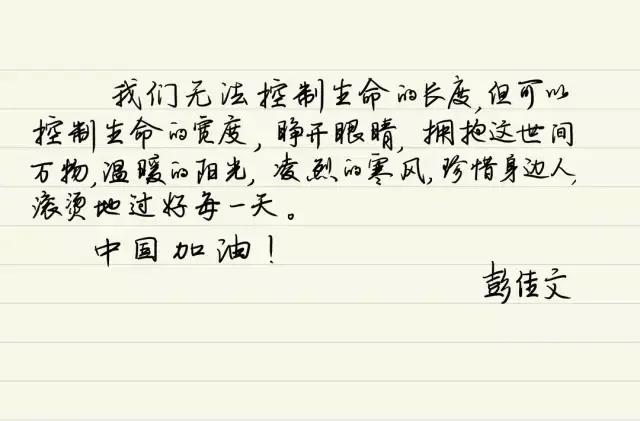 我们无法控制生命的长度,但可以
控制生命的宽度,睁开眼睛,拥抱这世间
万物,温暖的阳光,凌烈的寒风,珍惜身边人,
滚烫地过好每一天。
中国加油!
彭佳文